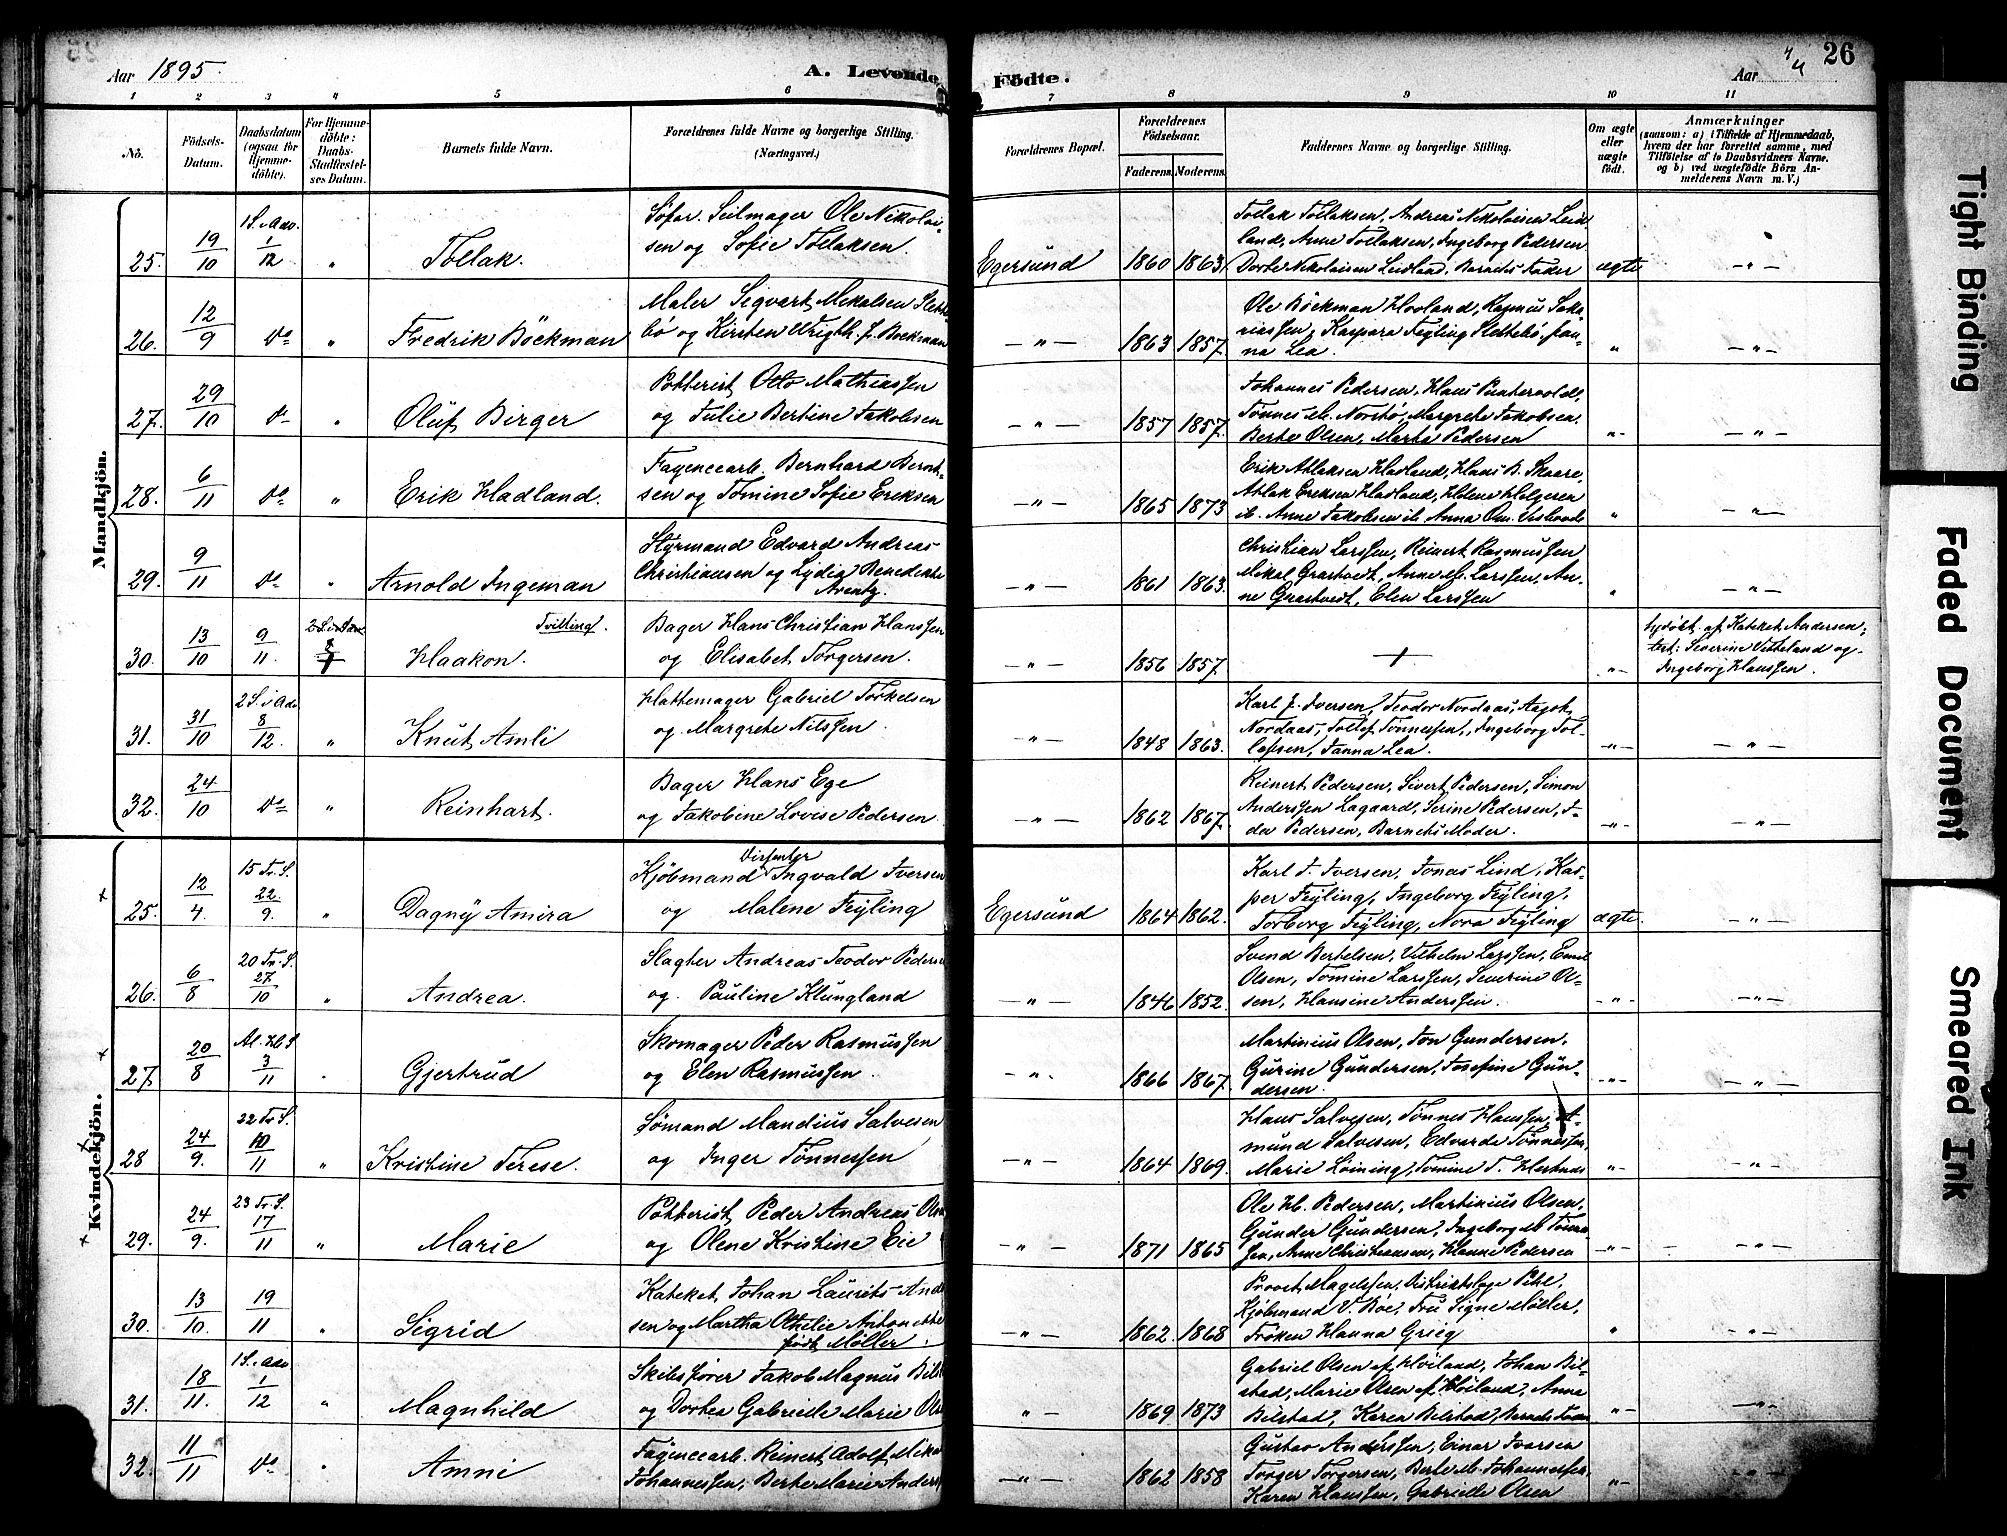 Aar 1895.
A. Levende
Födte.
Aar
26
1 2 3 4 5 6
7 8 9 10 11
No.
Födsels-Datum.
Daabsdatum (ogsaa for Hjemme-döbte).
For Hjemme-döbte: Daabs-Stadfæstel-ses Datum.
Barnets fulde Navn.
Forældrenes fulde Navne og borgerlige Stilling.
(Næringsvei.)
Forældrenes Bopæl.
Forældrenes Födselsaar.
Faderens. Moderens.
Faddernes Navne og borgerlige Stilling.
Om ægte eller uægte födt.
Anmærkninger
(saasom: a) i Tilfælde af Hjemmedaab,
hvem der har forrettet samme, med
Tilföielse af to Daabsvidners Navne.
og b) ved uægtefödte Börn An-
melderens Navn m. V.)
Mandkjön.
25. 19/10 1 S. i Adv. 1/12 " Tollak. Seilmager Ole Nikolai-
sen og Sofie Tollaksen.
Egersund 1860 1863. Tollak Tollaksen, Andreas Nikolaisen Leid-
land, Anne Tollaksen, Ingeborg Pedersen
Dorte Nikolaisen Leidland, Barnets Fader ægte — " —
26. 12/9 do " Fredrik Böckman Maler Sigvart Mikalsen Slett-
bö og Kirsten Wrigth f. Bockman
— " — 1863 1857. Ole Böckman Hovland, Rasmus Saka-
riassen, Kaspara Feyling Slettebö, Jan-
na Lea. " — " —
27. 29/10 do " Oluf Birger Potterist Otto Mathiassen
og Julie Bertine Jakobsen
— " — 1857 1857. Johannes Pedersen, Klaus
Tönnes M. Norstö, Margrete Jakobsen.
Berte Olsen, Marta Pedersen " — " —
28. 6/11 do " Erik Hadland. Fayencearb. Bernhard Bernt-
sen og Tomine Sofie Eriksen
— " — 1865 1873 Erik Atlaksen Hadland, Hans B. Skaare,
Atlak Eriksen Hadland, Helene Holgersen
ib. Anne Jakobsen ib. Anna " — " —
29. 9/11 do " Arnold Ingeman Styrmand Edvard Andreas
Christiansen og Lydia Benedikte
Arentz.
— " — 1861 1863. Christian Larssen, Reinert Rasmussen
Mikal Grastvedt, Anne M. Larssen, An-
ne Grastvedt, Elen Larssen " — " —
30. 13/10 9/11. Tvilling.
Haakon. Bager Hans Christian Hanssen
og Elisabet Torgersen.
— " — 1856 1857. + " af Kateket Andersen,
test: Severine Vetteland og
Ingeborg Hanssen.
31. 31/10 2 S. i Adv 8/12. " Knut Amli Hattemager Gabriel Torkelsen
og Margrete Nilssen.
— " — 1848 1863. Karl J. Iversen, Teodor Nordaas, Aagot
Nordaas, Tollef Tönnessen, Ingeborg Tol-
lefsen, Janna Lea. — " — — " —
32. 24/10 do " Reinhart. Bager Hans Ege
og Jakobine Lovise Pedersen
— " — 1862 1867. Reinert Pedersen, Sivert Pedersen, Simon
Anderssen Lagaard, Serine Pedersen, I-
da Pedersen, Barnets Moder. — " — — " —
Kvindekjön.
25. 12/4. 15 Tr. S. 22/9. " Dagny Amira Kjöbmand Ingvald Iversen
og Malene Feyling
Egersund 1864 1862. Karl J. Iversen, Jonas Lind, Kas-
per Feyling, Ingeborg Feyling,
Torborg Feyling, Nora Feyling ægte. — " —
26. 6/8 20 Tr. S. 27/10 " Andrea. Slagter Andreas Teodor Pederse
og Pauline Klungland
— " — 1846 1852. Svend Bertelsen, Vilhelm Larssen, Emil
Olsen, Tomine Larssen, Severine Ol-
sen, Hansine Anderssen. — " — — " —
27 20/8 Al. H. S 3/11 " Gjertrud Skomager Peder Rasmussen
og Elen Rasmussen.
— " — 1866 1867. Martinius Olsen, Jon Gundersen,
Gurine Gundersen, Josefine Gun-
dersen. — " — — " —
28 24/9. 22 Tr. S. 10/11 " Kristine Terese. Sömand Mandius Salvesen
og Inger Tönnessen
— " — 1864 1869. Hans Salvesen, Tönnes Hanssen, A-
mund Salvesen, Edvarda Tönnessen,
Marie Löining, Tomine T. — " — — " —
29. 24/9. 23 Tr. S. 17/11 " Marie Potterist Peder Andreas Olse
og Olene Kristine Eie
— " — 1871 1865 Ole Hb. Pedersen, Martinius Olsen,
Gunder Gundersen, Ingeborg M. Tönnes-
sen, Anne Christiansen, Hanne Pedersen — " — — " —
30. 13/10. 19/11 " Sigrid Kateket Johan Laurits Ander
sen og Martha Othelie Antonette
födt Möller.
— " — 1862. 1868 Provst Magelssen, Distriktslæge Pihl,
Kjöbmand V. Böe, Fru Signe Möller,
Fröken Hanna Grieg " — " —
31. 18/11. 1 S. i Adv 1/12 " Magnhild Skibsförer Jakob Magnus Bilst
og Dortea Gabrielle Marie Ols
" — 1869 1873 Gabriel Olsen af Höiland, Johan Bil-
stad, Marie Olsen af Höiland, Anna
Bilstad, Karen Bilstad, Barnets Fader — " — — " —
32. 11/11 do " Amni Fayencearb. Reinert Adolf Mika
Johannessen, Berte Marie Anders
— " — 1862 1858 Gustav Anderssen, Einar Ivarsen
Torger Torgersen, Berte M. Johannessen,
Karen Hanssen, Gabrielle Olsen — " — — " —
Tight Binding
Faded Document
Smeared Ink